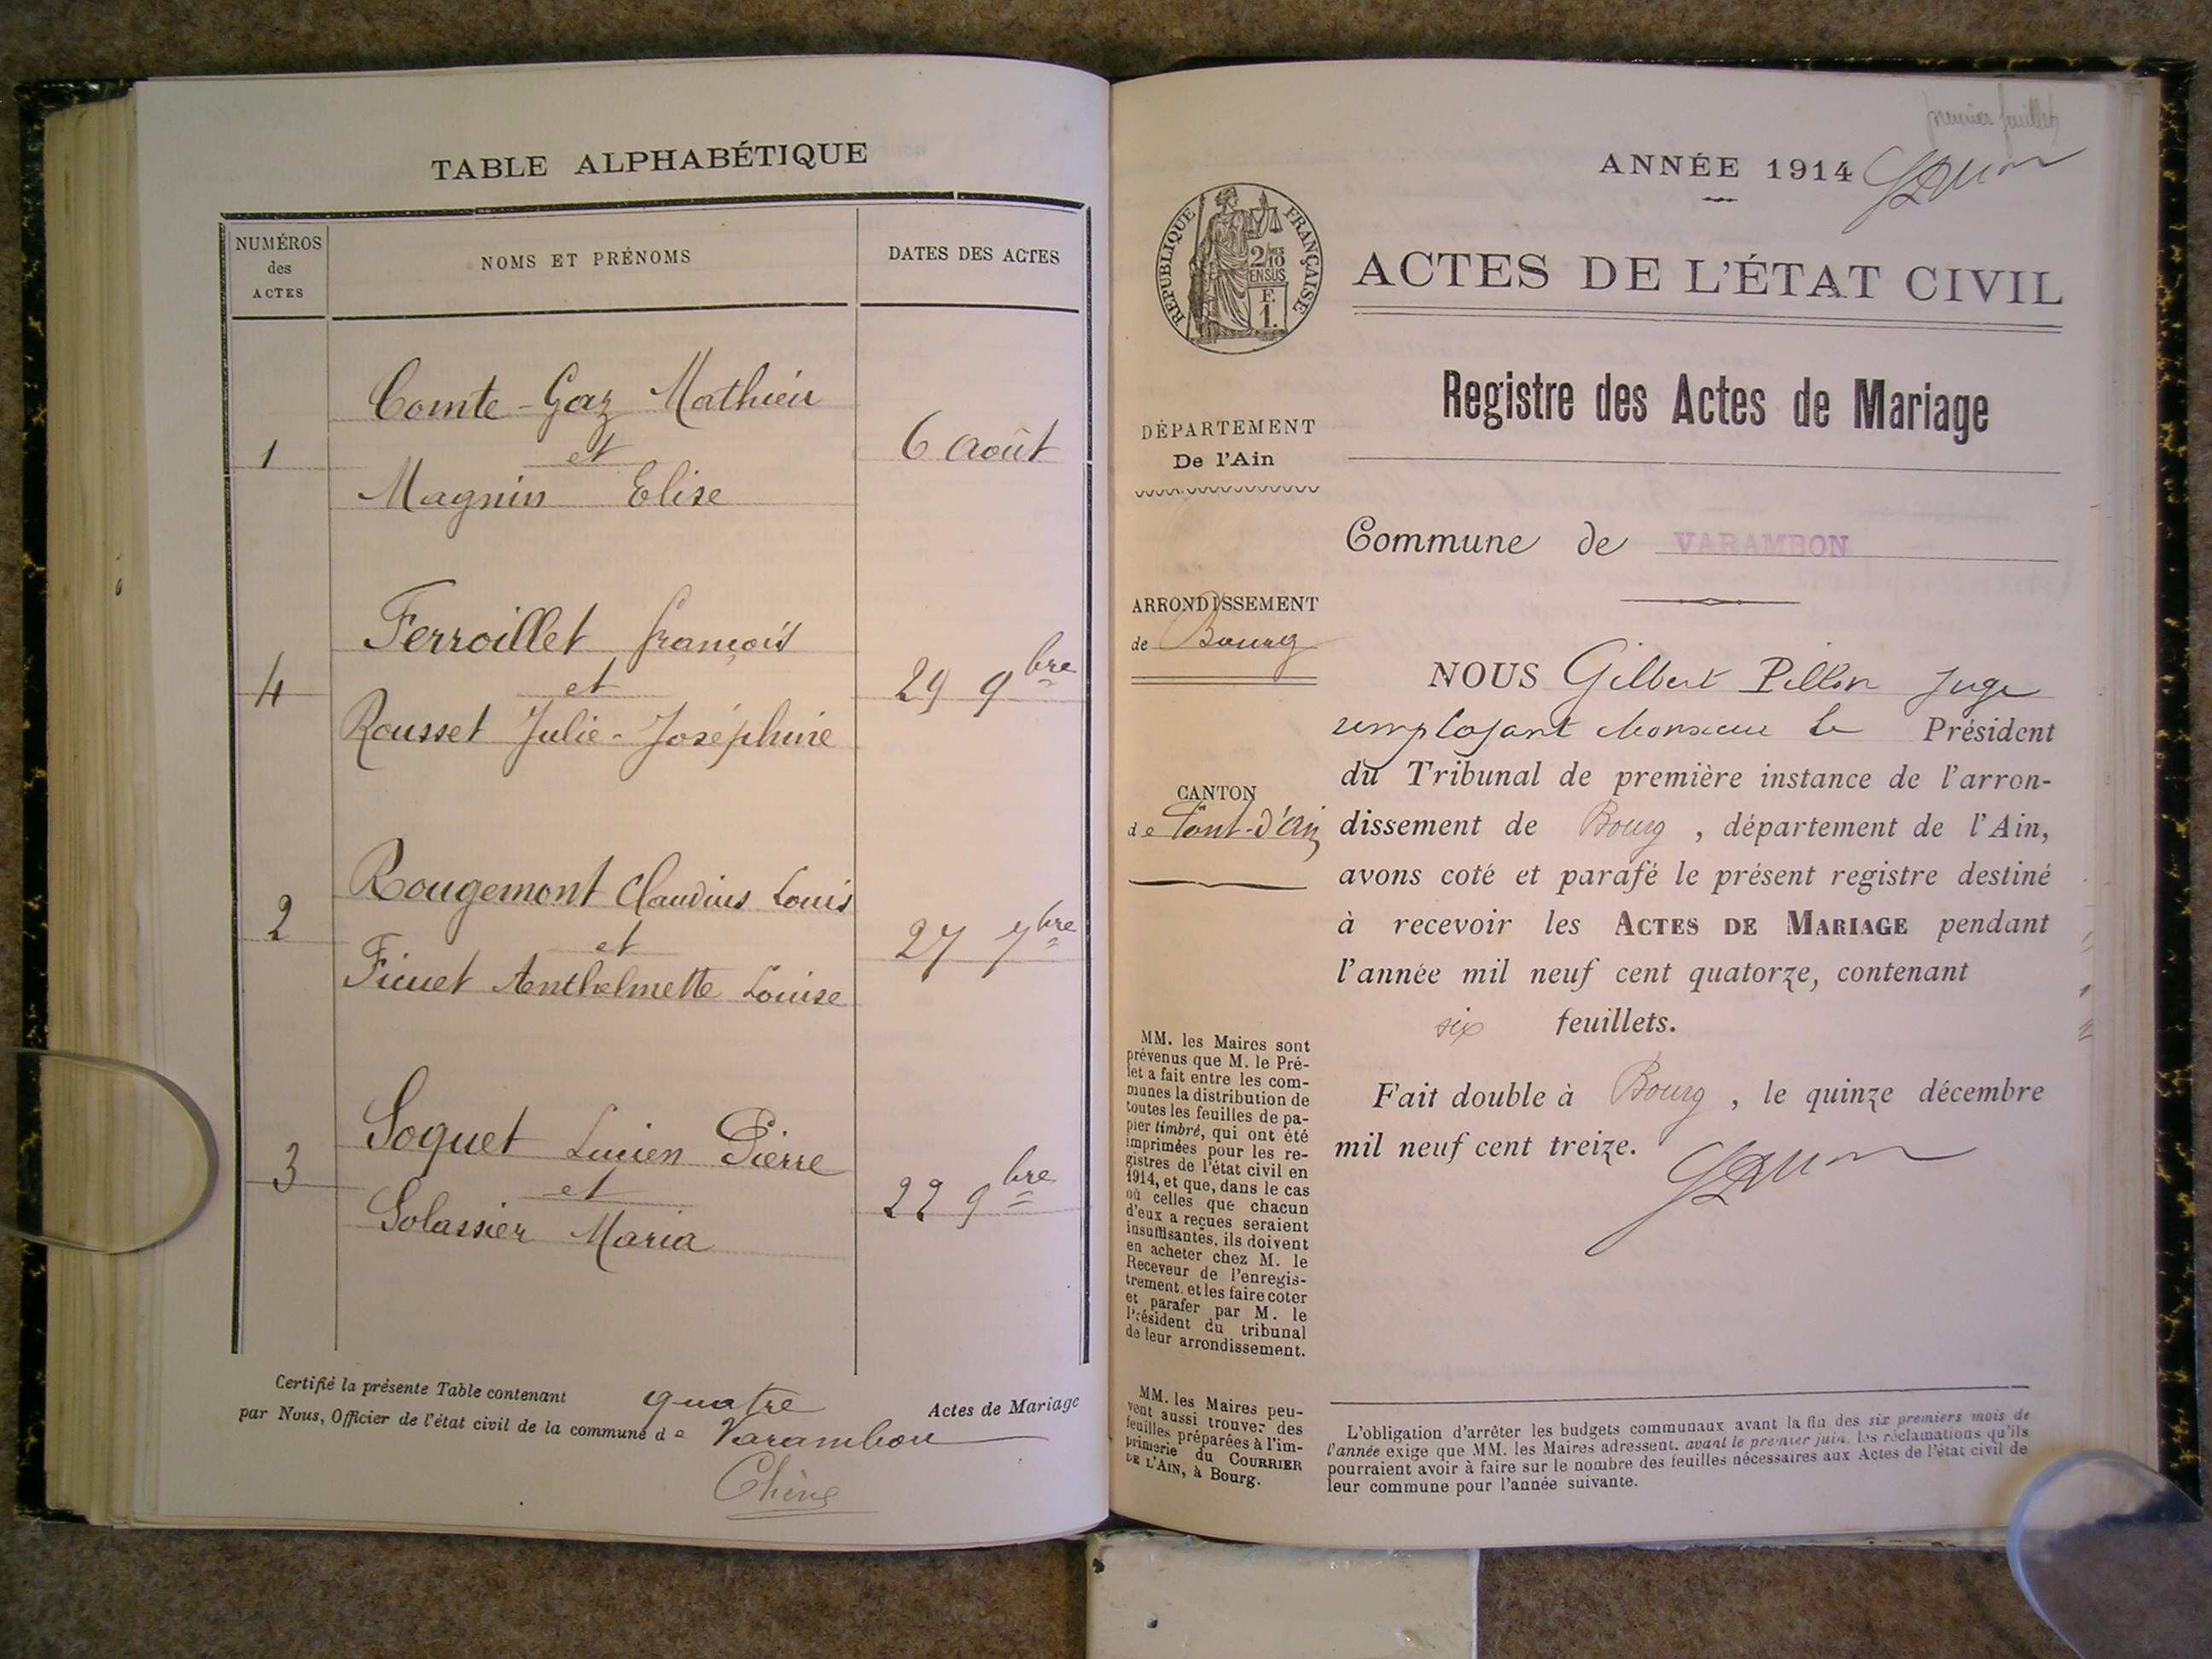 TABLE ALPHABÉTIQUE
NUMÉROS
des
ACTES
NOMS ET PRÉNOMS
DATES DES ACTES
Comte-Gaz Mathieu
1 et 6 Août
Magnin Elise
Ferroillet françois
4 et 29 9bre
Rousset Julie-Joséphine
Rougemont Claudius Louis
2 et 27 7bre
Ficuet Anthelmette Louise
Soquet Lucien Pierre
3 et 22 9bre
Solassier Maria
Certifié la présente Table contenant quatre Actes de Mariage
par Nous, Officier de l'état civil de la commune de Varambon
Chêne
premier feuillet
ANNÉE 1914
RÉPUBLIQUE FRANÇAISE
2/10
EN SUS
F.
1.
ACTES DE L'ÉTAT CIVIL
Registre des Actes de Mariage
DÉPARTEMENT
De l'Ain
Commune de VARAMBON
ARRONDISSEMENT
de Bourg
CANTON
de Pont-d'Ain
NOUS Gilbert Pillon Juge
remplaçant Monsieur le Président
du Tribunal de première instance de l'arron-
dissement de Bourg, département de l'Ain,
avons coté et parafé le présent registre destiné
à recevoir les ACTES DE MARIAGE pendant
l'année mil neuf cent quatorze, contenant
six feuillets.
Fait double à Bourg, le quinze décembre
mil neuf cent treize.
MM. les Maires sont
prévenus que M. le Pré-
fet a fait entre les com-
munes la distribution de
toutes les feuilles de pa-
pier timbré, qui ont été
imprimées pour les re-
gistres de l'état civil en
1914, et que, dans le cas
où celles que chacun
d'eux a reçues seraient
insuffisantes, ils doivent
en acheter chez M. le
Receveur de l'enregis-
trement, et les faire coter
et parafer par M. le
Président du tribunal
de leur arrondissement.
MM. les Maires peu-
vent aussi trouver des
feuilles préparées à l'im-
primerie du COURRIER
DE L'AIN, à Bourg.
L'obligation d'arrêter les budgets communaux avant la fin des six premiers mois de
l'année exige que MM. les Maires adressent, avant le premier juin, les réclamations qu'ils
pourraient avoir à faire sur le nombre des feuilles nécessaires aux Actes de l'état civil de
leur commune pour l'année suivante.